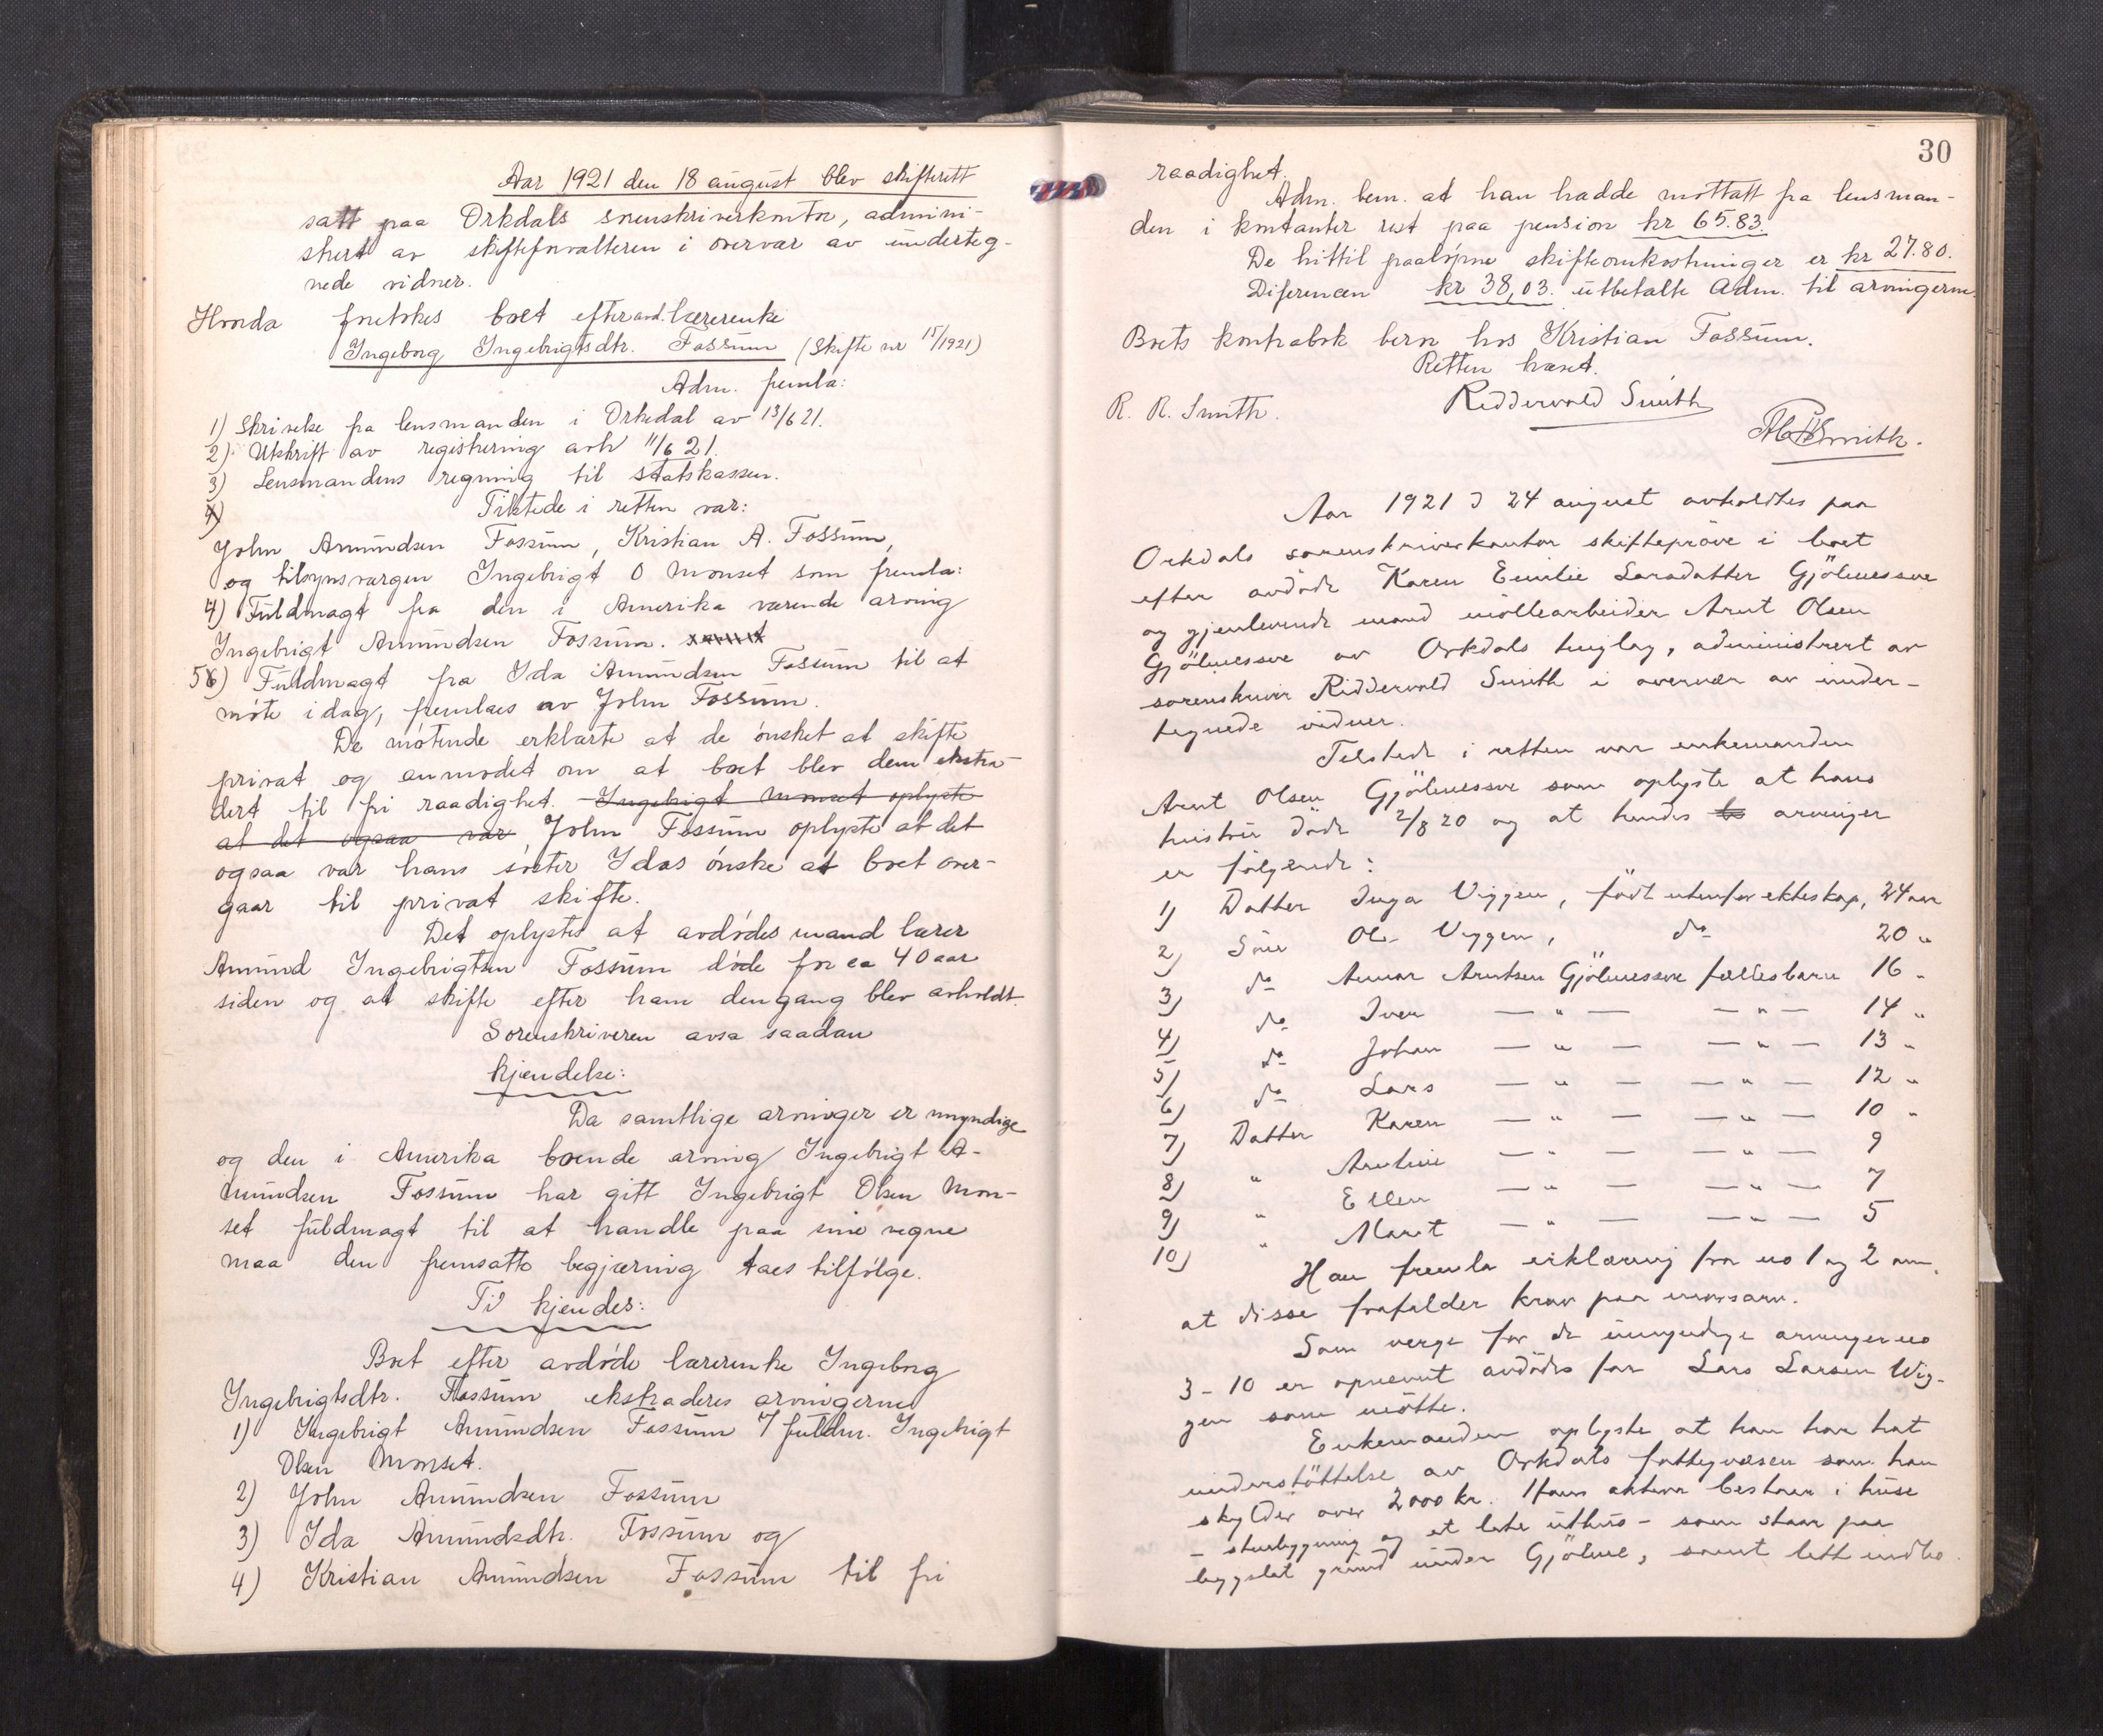 Aar 1921 den 18 august blev skifterett
satt paa Orkdals sorenskriverkontor, admini-
strert av skifteforvalteren i overvær av underteg-
nede vidner.
Hvorda foretokes boet efter avd. lærerenke
Ingeborg Ingebrigtsdtr. Fossum (Skifte nr 15/1921)
Adm. fremla:
1) Skrivelse fra lensmanden i Orkedal av 13/6 21.
2) Utskrift av registrering avh 11/6 21.
3) Lensmandens regning til statskassen.
4) Tilstede i retten var:
John Amundsen Fossum, Kristian A. Fossum,
og tilsynsvergen Ingebrigt O Monset som fremla:
4) Fuldmagt fra den i Amerika værende arving
Ingebrigt Amundsen Fossum. samt
5) Fuldmagt fra Ida Amundsen Fossum til at
møte idag, fremlaes av John Fossum.
De møtende erklærte at de ønsket at skifte
privat og anmodet om at boet blev dem ekstra-
dert til fri raadighet. Ingebrigt Monset oplyste
at det ogsaa var John Fossum oplyste at det
ogsaa var hans søster Idas ønske at boet over-
gaar til privat skifte.
Det oplystes at avdødes mand lærer
Amund Ingebrigtsen Fossum døde for ca 40 aar
siden og at skifte efter ham dengang blev avholdt.
Sorenskriveren avsa saadan
kjendelse:
Da samtlige arvinger er myndige
og den i Amerika boende arving Ingebrigt A-
mundsen Fossum har gitt Ingebrigt Olsen Mon-
set fuldmagt til at handle paa sine vegne
maa den fremsatte begjæring taes tilfølge.
Ti kjendes:
Boet efter avdøde lærerenke Ingeborg
Ingebrigtsdtr. Fossum ekstraderes arvingerne
1) Ingebrigt Amundsen Fossum v/ fuldm. Ingebrigt
Olsen Monset.
2) John Amundsen Fossum
3) Ida Amundsdtr. Fossum og
4) Kristian Amundsen Fossum til fri
30
raadighet.
Adm. bem. at han hadde mottatt fra lensman-
den i kontanter rest paa pension kr 65.83.
De hittil paaløpne skifteomkostninger er kr 27.80.
Diferencen kr 38,03. utbetalte Adm. til arvingerne.
Boets kontrabok beror hos Kristian Fossum.
Retten hævet.
R. R. Smith. Riddervold Smith
Smith.
Aar 1921 d 24 august avholdtes paa
Orkdals sorenskriverkontor skifteprøve i boet
efter avdøde Karen Emilie Larsdatter Gjølmesøre
og gjenlevende mand møllearbeider Arnt Olsen
Gjølmesøre av Orkdals tinglag, administrert av
sorenskriver Riddervold Smith i overvær av under-
tegnede vidner.
Tilstede i retten var enkemanden
Arnt Olsen Gjølmesøre som oplyste at hans
hustru døde 2/8 20 og at hendes bo arvinger
er følgende:
1) Datter Inga Viggen, født utenfor ekteskap, 24 aar
2) Søn Ole Viggen, do 20 "
3) do Annar Arntsen Gjølmesøre fællesbarn 16 "
4) do Iver — " — — " — 14 "
5) do Johan — " — — " — 13 "
6) do Lars — " — — " — 12 "
7) Datter Karen — " — — " — 10 "
8) " Arntine — " — — " — 9
9) " Ellen — " — — " — 7
10) " Marit — " — — " — 5
Han fremla erklæring fra no 1 og 2 om,
at disse frafalder krav paa morsarv.
Som verge for de umyndige arvinger no
3 - 10 er opnevnt avdødes far Lars Larsen Vig-
gen som møtte.
Enkemanden oplyste at han har hat
understøttelse av Orkdals fattigvæsen som han
skylder over 2000 kr. Hans aktiva bestaar i huse
- stuebygning og et lite uthus - som staar paa
bygslet grund under Gjølme, samt litt indbo